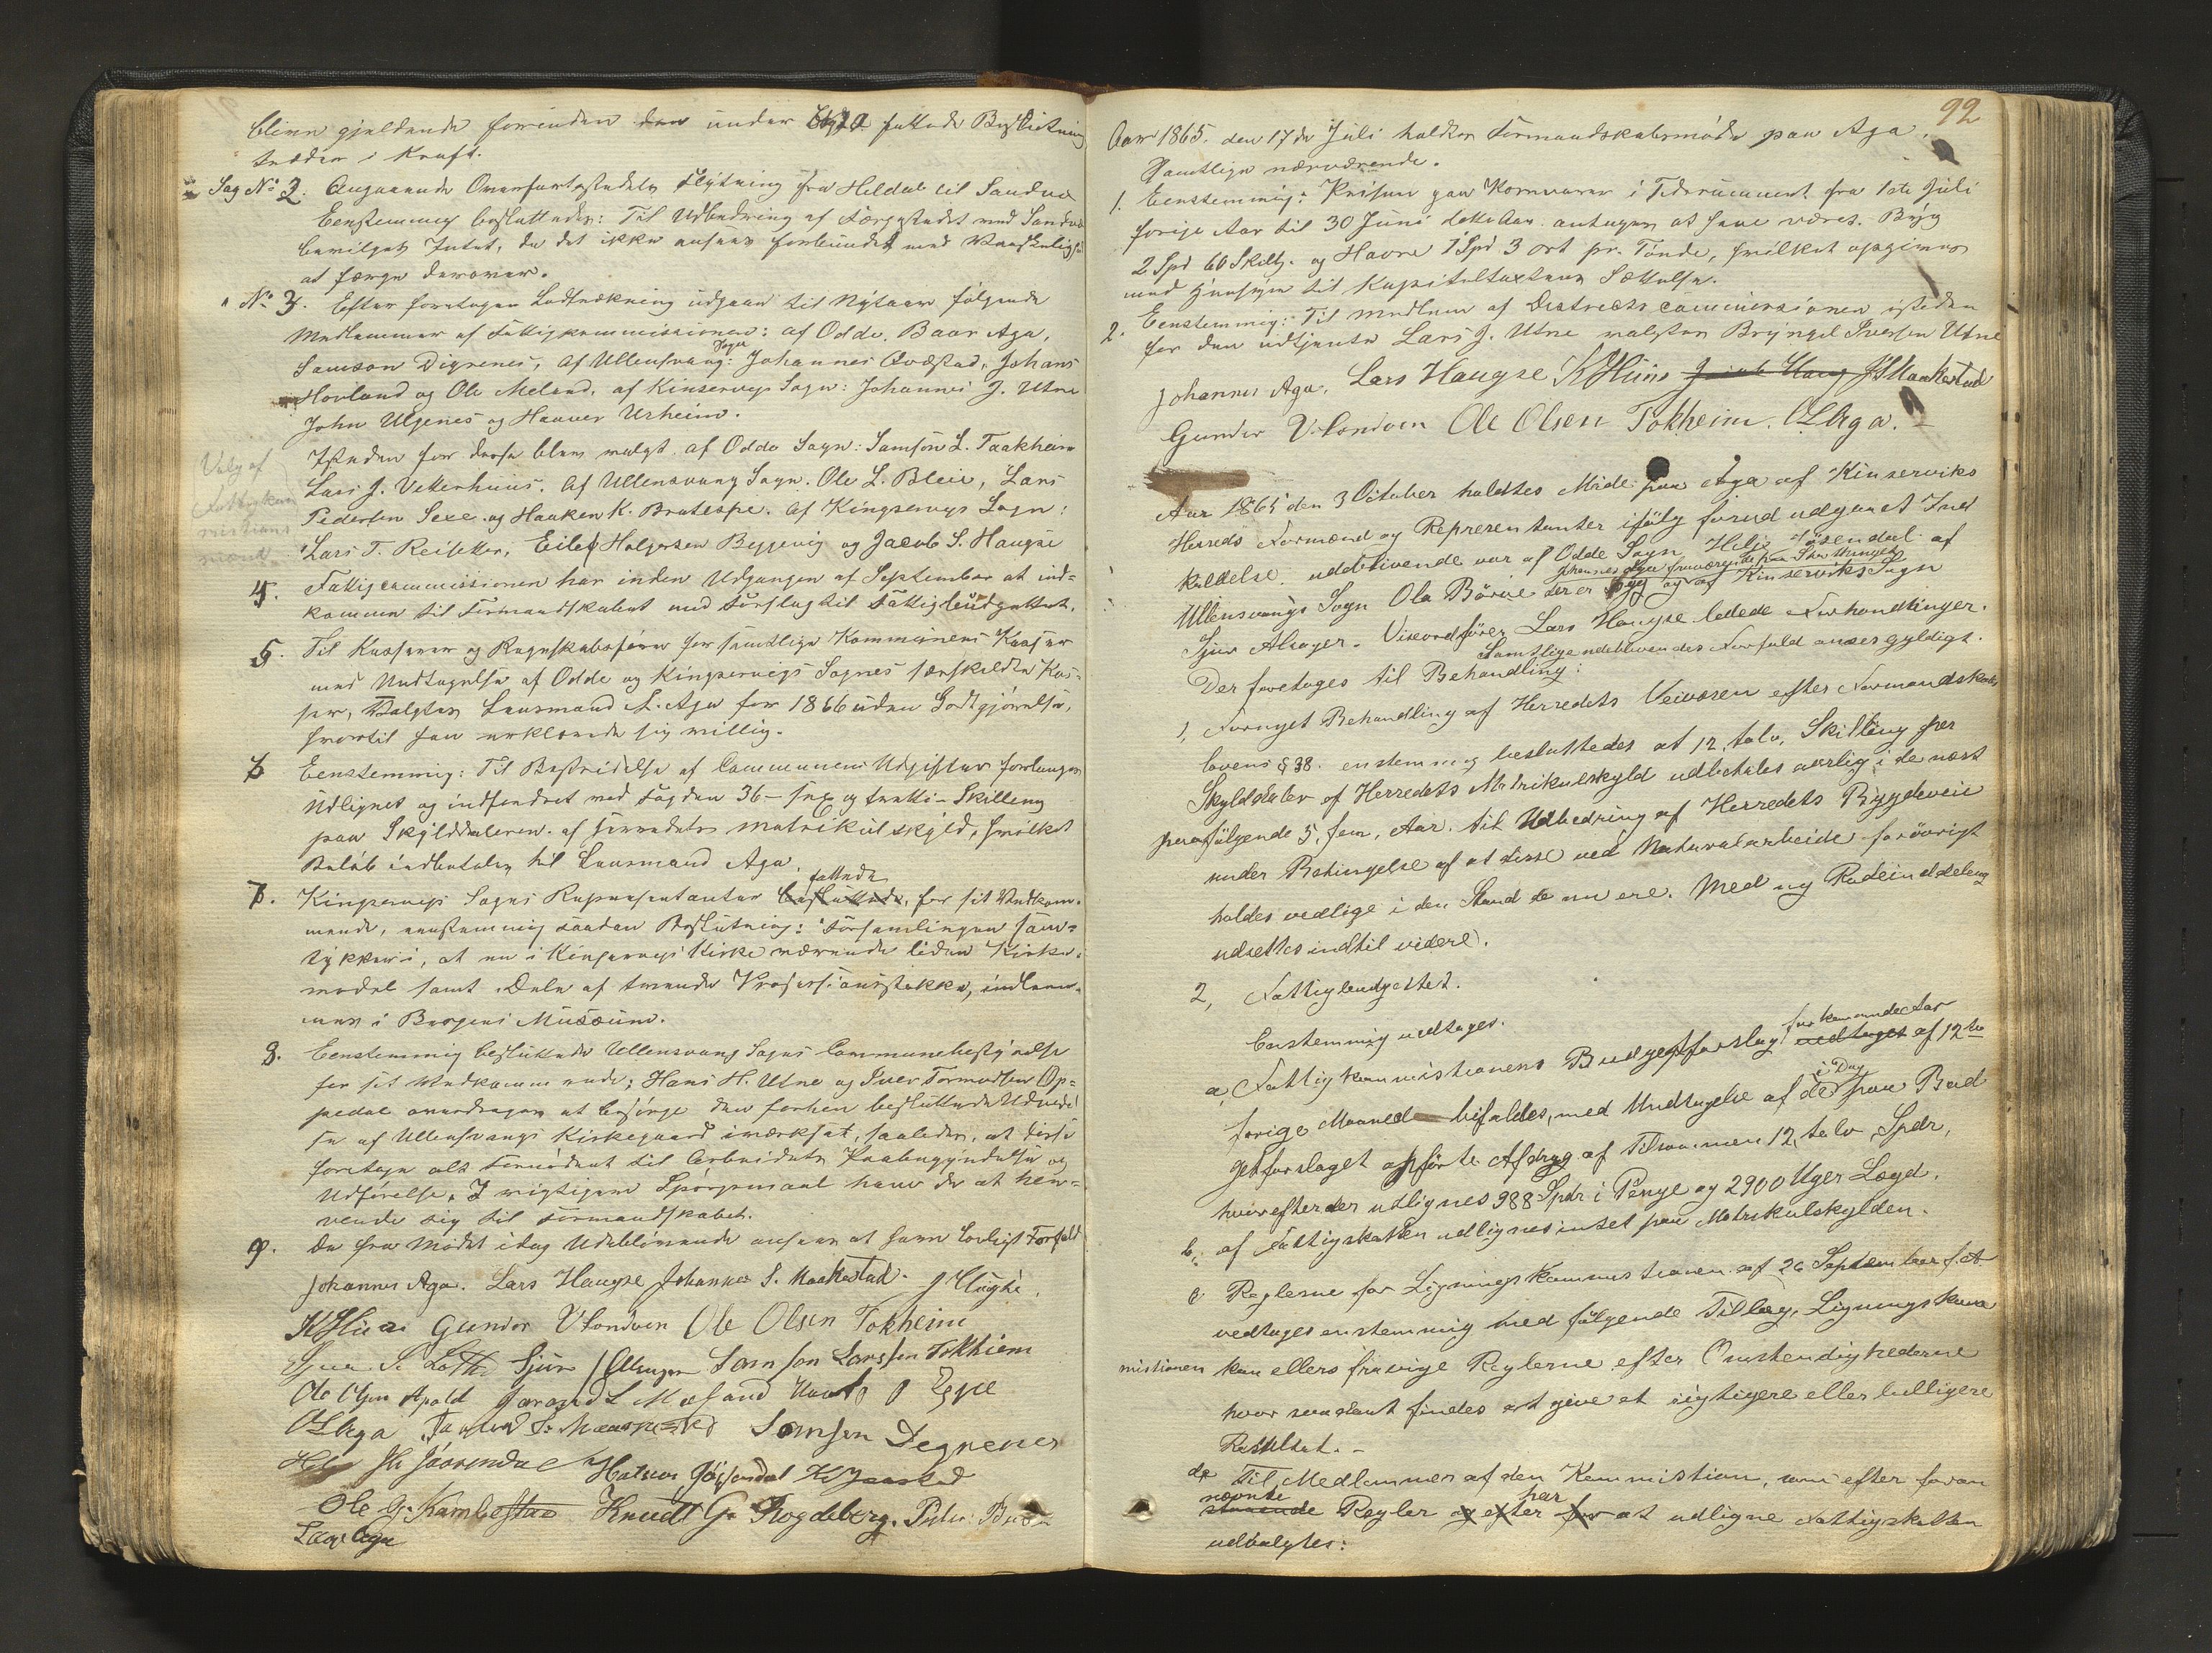 blive gjældende forinden den under fattede Beslutning
træder i Kraft.
Sag No 2. Angaaende Overfartsstedets Flytning fra Hildal til Sandve
Eenstemmig besluttedes: Til Udbedring af Færgestedet ved Sandve
bevilges Intet, da det ikke ansees forbundet med Vanskelighed
at færge derover.
" No 3. Efter foretagen Lodtrækning udgaaer til Nytaar følgende
Medlemmer af Fattigkommissionen: af Odde. Baar Aga,
Samson Digrenes, af Ullensvang: Johannes Qvæstad, Johans
Hovland og Ole Meland, af Kinservigs Sogn: Johannes J. Utne
John Ulgenes og Haaver Urheim.
Valg af
Fattigkom
missions
mænd
Isteden for disse blev valgt, af Odde Sogn: Samson L. Taakheim
Lars J. Vetterhuus. Af Ullensvang Sogn. Ole L. Bleie, Lars
Pedersen Sexe og Haaken K. Bratespe. Af Kingservigs Sogn:
Lars T. Reisæter, Eilef Holgersen Beggevig og Jacob S. Haugse
4. Fattigcommissionen har inden Udgangen af September at ind=
komme til Formandskabet med Forslag til Fattigbudgettet.
5. Til Kasserer og Regnskabsfører for samtlige Kommunens Kasser
med Undtagelse af Odde og Kingservigs Sognes særskildte Kas=
ser, Valgtes Lensmand L. Aga for 1866 uden Godtgjørelse,
hvortil han erklærede sig villig.
6 Eenstemmig: Til Bestridelse af Communens Udgifter forlanges
Udlignet og indfordret ved Fogden 36 – sex og tretti – Skilling
paa Skylddaleren af Herredets matrikulskyld, hvilket
Beløb indbetales til Lensmand Aga.
7. Kingservigs Sogns Repræsentanter fattede besluttede, for sit Vedkom=
mende, eenstemmig saadan Beslutning: "Forsamlingen sam=
tykker i, at en i Kinservigs Kirke værende liden Kirke=
model samt Dele af tvende Professionsstokke, indlem=
mes i Bergens Musæum.
8. Eenstemmig besluttede Ullensvang Sogns Communebestyrelse
for sit Vedkommende; Hans H. Utne og Iver Tormodsen Op=
pedal overdrages at besørge den forhen besluttede Udvidel
se af Ullensvangs Kirkegaard iværksat, saaledes, at disse
foretage alt Fornødent til Arbeidets Paabegyndelse og
Udførelse. I vigtigere Spørgsmaal have de at hen=
vende sig til Formandskabet.
9. De fra Mødet idag Udeblivende ansees at have lovligt Forfald
Johannes Aga. Lars Haugse Johannes S. Maakestad.
K Huus Gunder Vtondven Ole Olsen Tokheim
Lothe Sjur Samson Larssen Tokheim
Ole Apold
OLAga Samson Degrenes
Ole G. Kambestad Knudt G. Frogdeberg. Peder
Lars Aga
92
Aar 1865. den 17de Juli holdtes Formandskabsmøde paa Aga.
Samtlige nærværende.
1. Eenstemmig: Prisen paa Kornvarer i Tidsrummet fra 1ste Juli
forige Aar til 30 Juni dette Aar antages at have været. Byg
2 Spd 60 Skill. og Havre 1 Spd 3 ort pr. Tønde, hvilket opgives
med Hensyn til Kapiteltaxtens Sættelse.
2. Eenstemmig: Til medlem af Districtscommissionen isteden
for den udtjente Lars J. Utne valgtes Bryngel Iversen Utne
Johannes Aga. Lars Haugse K Huus Jacob Haug JSMaakestad
Gunder Vtondven Ole Olsen Tokheim. OLAga.
Aar 1865 den 3 October holdtes Møde paa Aga af Kinserviks
Herreds Formænd og Representanter ifølg forud udgaaet Ind
kaldelse. uddblivende var af Odde Sogn, Helje Jösendal. af
Ullensvangs Sogn Ola Börve der er syg og af Kinserviks Sogn
Sjur Alsager. Viseordförer Lars Haugse ledede Forhandlinger.
Samtlige udeblivendes Forfald ansees gyldigt.
Der foretoges til Behandling:
1, Fornyet Behandling af Herredets Veivæsen efter Formandskabs
lovens § 38. enstemmig besluttedes at 12, tolv, Skilling per
Skylddaler af Herredets Matrikulskyld udbetales aarlig i de næst
paafølgende 5, fem, Aar. til Udbedring af Herredets Bygdeveie
under Betingelse af at disse ved Naturalarbeide forövrigt
holdes vedlige i den Stand de nu ere. Med ny Rodeinddeling
udsettes indtil videre.
2, Fattigbudgettet.
Enstemmig vedtages.
a, Fattigkommistionens Budgetforslag for kommende Aar vedtaget af 12te
forige Maaned bifaldes, med Undtagelse af de i Dag paa Bud
getforslaget opförte Afdrag af Tilsammen 12, tolv, Spdr,
hvorefter der udlignes 988 Spdr i Penge og 2900 Uger Lægd.
b. af Fattigskatten udlignes intet paa Matrikulskylden.
c Reglerne for Ligningskommistionen af 26 September f. A
vedtages enstemmig med følgende Tillæg, Ligningskom
mistionen kan ellers fravige Reglerne efter Omstendighederne
hvor saadant findes at give et rigtigere eller billigere
Resultat. –
d, Til Medlemmer af den Kommistion, som efter foran
nævnte staaende Regler og efter har for at udligne Fattigskatten
udvalgtes: